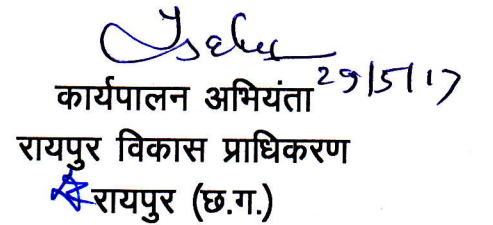 29/5/17
कार्यपालन अभियंता
रायपुर विकास प्राधिकरण
रायपुर (छ.ग.)